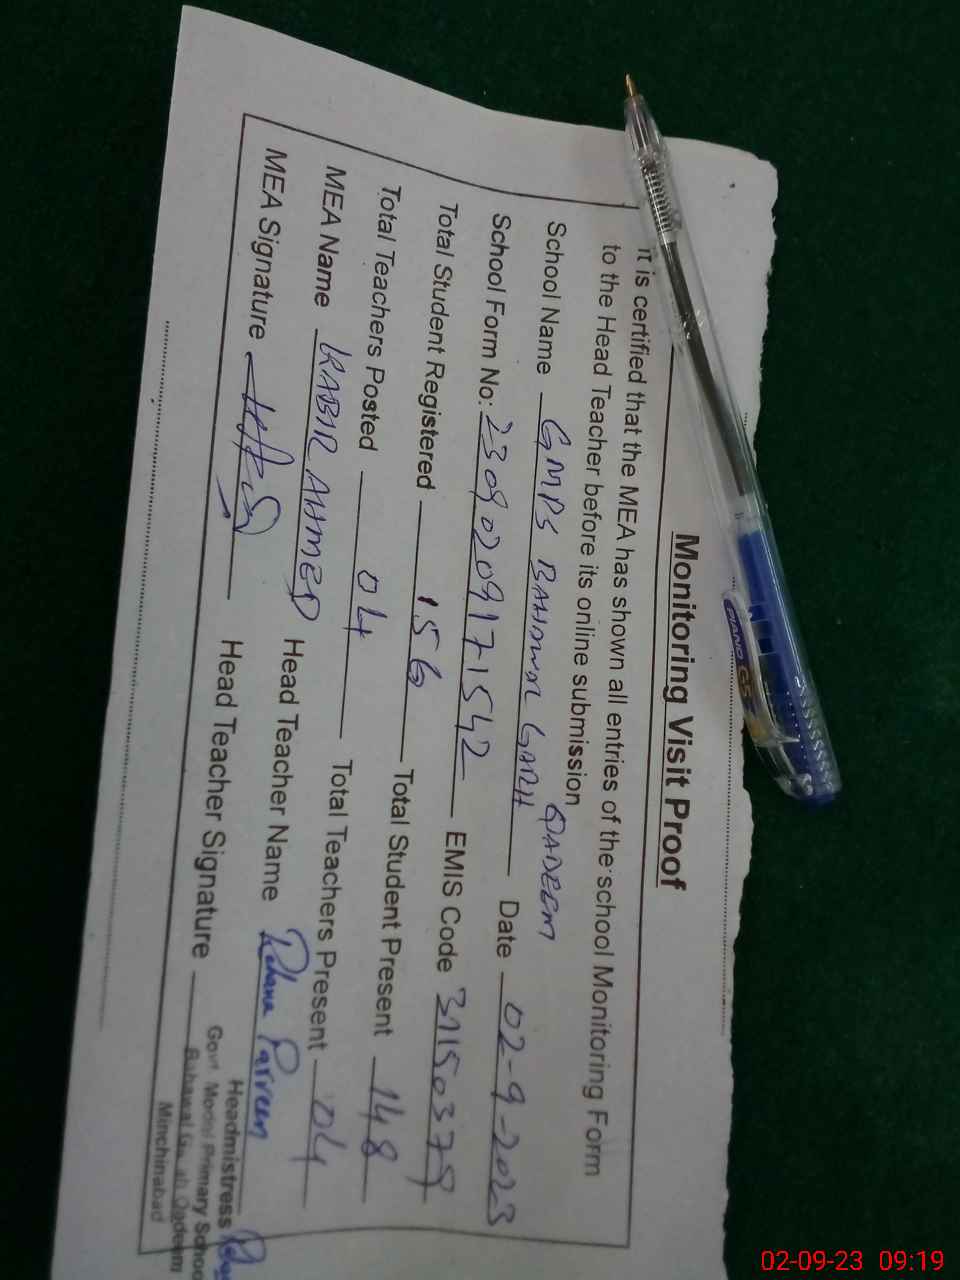 Monitoring Visit Proof
It is certified that the MEA has shown all entries of the school Monitoring Form
to the Head Teacher before its online submission
School Name GMPS BAHAWAL GARH QADEEM Date 02-9-2023
School Form No: 2309020917 1542 EMIS Code 31150379
Total Student Registered 156 Total Student Present 148
Total Teachers Posted 04 Total Teachers Present 04
MEA Name KABIR AHMED Head Teacher Name Rehana Parveen
MEA Signature Head Teacher Signature
Headmistress
Govt. Model Primary School
Bahawal Garh Qadeem
Minchinabad
PIANO G5
02-09-23 09:19